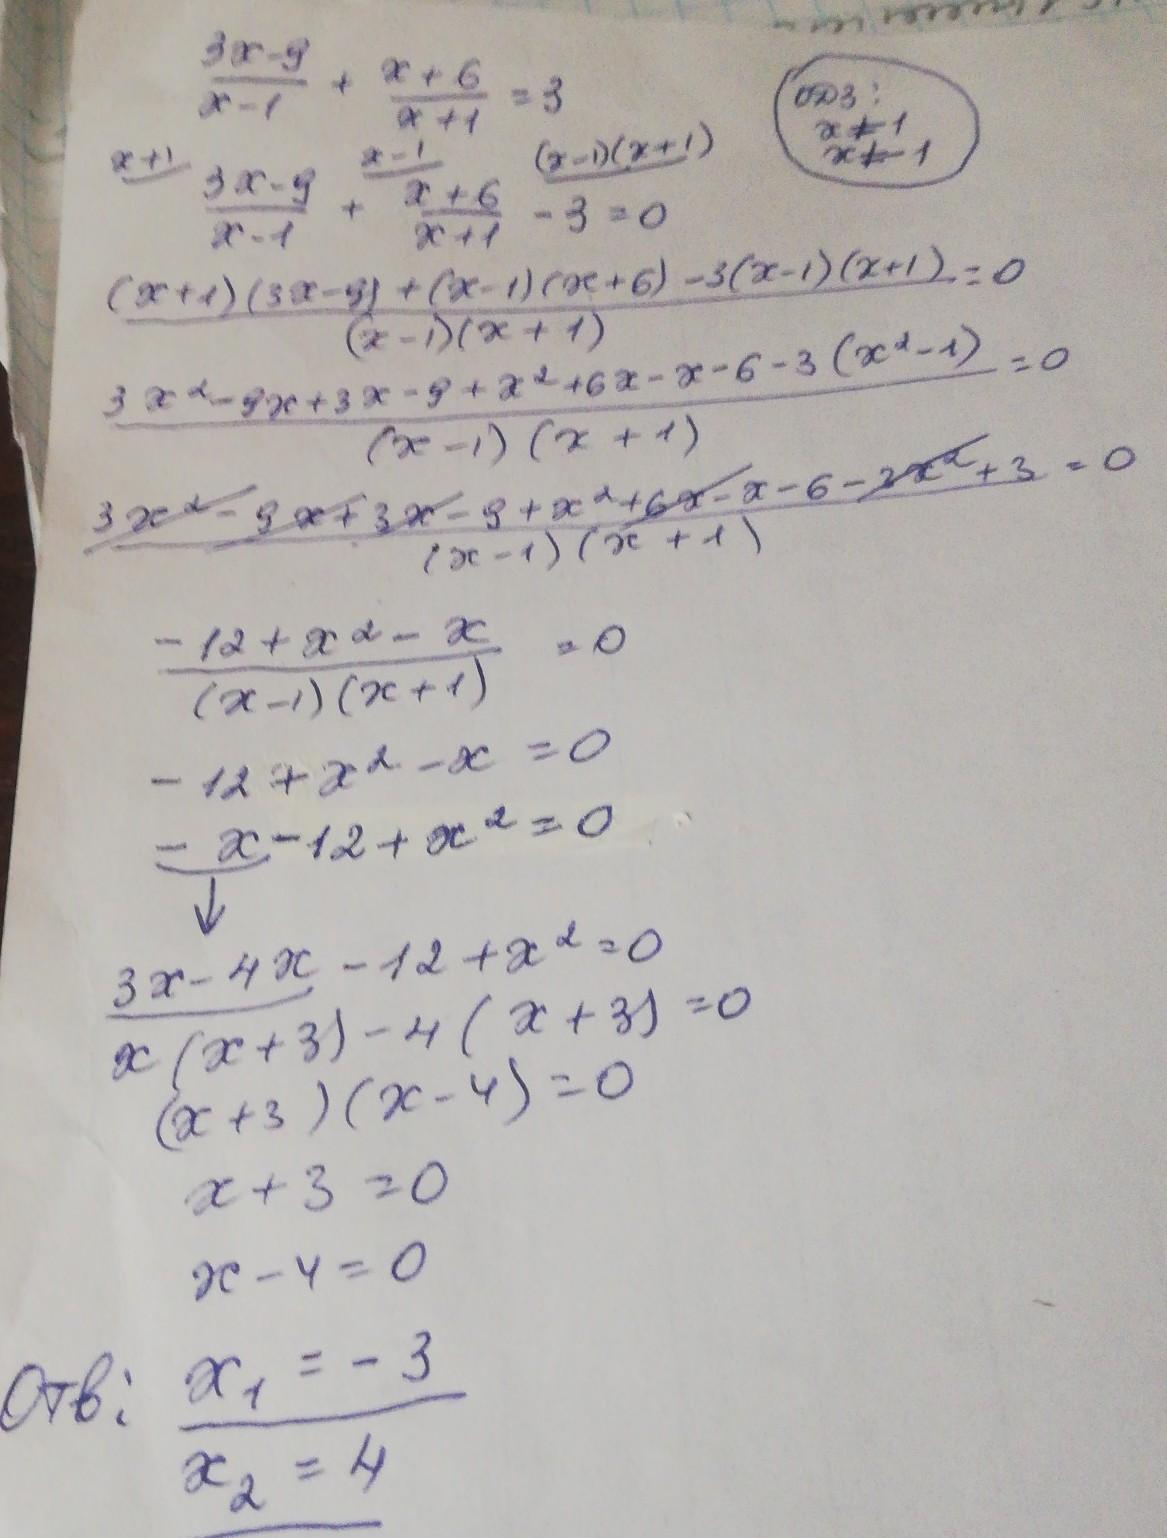 (3x-9)/(x-1) + (x+6)/(x+1) = 3
ОДЗ:
x≠1
x≠-1
x+1 x-1 (x-1)(x+1)
(3x-9)/(x-1) + (x+6)/(x+1) - 3 = 0
((x+1)(3x-9)+(x-1)(x+6)-3(x-1)(x+1))/((x-1)(x+1)) = 0
(3x²-9x+3x-9+x²+6x-x-6-3(x²-1))/((x-1)(x+1)) = 0
(3x²-9x+3x-9+x²+6x-x-6-3x²+3)/((x-1)(x+1)) = 0
(-12+x²-x)/((x-1)(x+1)) = 0
-12+x²-x=0
-x-12+x²=0
↓
3x-4x-12+x²=0
x(x+3)-4(x+3)=0
(x+3)(x-4)=0
x+3=0
x-4=0
Отв: x₁=-3
x₂=4